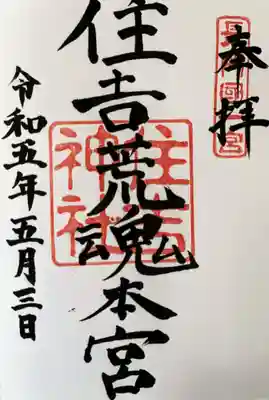 奉拝
住吉荒魂本宮
住吉神社
令和五年五月三日